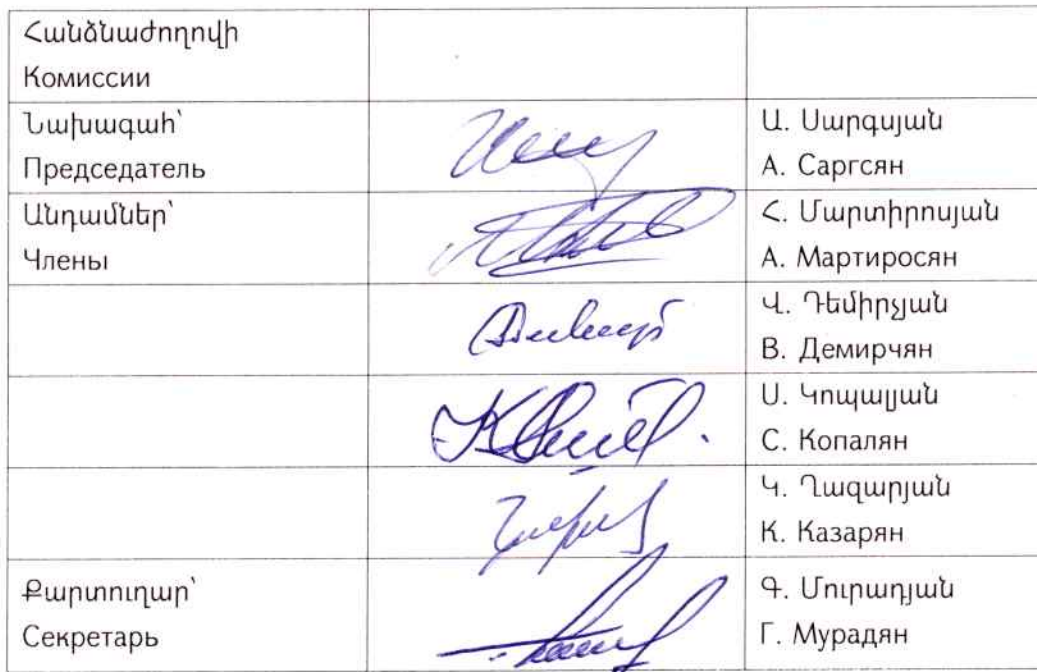 Հանձնաժողովի
Комиссии
Նախագահ՝
Председатель
Ա. Սարգսյան
А. Саргсян
Անդամներ՝
Члены
Հ. Մարտիրոսյան
А. Мартиросян
Վ. Դեմիրչյան
В. Демирчян
Ս. Կոպալյան
С. Копалян
Կ. Ղազարյան
К. Казарян
Քարտուղար՝
Секретарь
Գ. Մուրադյան
Г. Мурадян